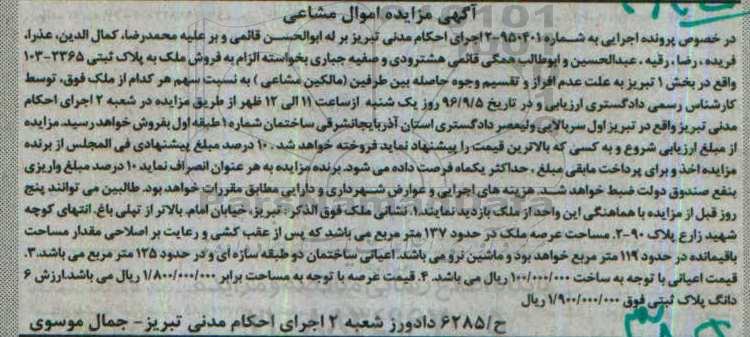 آگهی مزایده اموال مشاعی
در خصوص پرونده اجرایی به شماره ۹۵۰۴۰۱-۲ اجرای احکام مدنی تبریز بر له ابوالحسن قائمی و بر علیه محمدرضا، کمال الدین، عذرا،
فریده، رضا، رقیه، عبدالحسین و ابوطالب همگی قائمی هشترودی و صفیه جباری بخواسته الزام به فروش ملک به پلاک ثبتی ۲۳۶۵-۱۰۳
واقع در بخش ۱ تبریز به علت عدم افراز و تقسیم وجوه حاصله بین طرفین (مالکین مشاعی) به نسبت سهم هر کدام از ملک فوق، توسط
کارشناس رسمی دادگستری ارزیابی و در تاریخ ۹۶/۹/۵ روز یک شنبه ازساعت ۱۱ الی ۱۲ ظهر از طریق مزایده در شعبه ۲ اجرای احکام
مدنی تبریز واقع در تبریز اول سربالایی ولیعصر دادگستری استان آذربایجانشرقی ساختمان شماره ۱ طبقه اول بفروش خواهد رسید. مزایده
از مبلغ ارزیابی شروع و به کسی که بالاترین قیمت را پیشنهاد نماید فروخته خواهد شد. ۱۰ درصد مبلغ پیشنهادی فی المجلس از برنده
مزایده اخذ و برای پرداخت مابقی مبلغ، حداکثر یکماه فرصت داده می شود. برنده مزایده به هر عنوان انصراف نماید ۱۰ درصد مبلغ واریزی
بنفع صندوق دولت ضبط خواهد شد. هزینه های اجرایی و عوارض شهرداری و دارایی مطابق مقررات خواهد بود. طالبین می توانند پنج
روز قبل از مزایده با هماهنگی این واحد از ملک بازدید نمایند. ۱. نشانی ملک فوق الذکر: تبریز، خیابان امام. بالاتر از تپلی باغ. انتهای کوچه
شهید زارع پلاک ۹۰-۲. مساحت عرصه ملک در حدود ۱۳۷ متر مربع می باشد که پس از عقب کشی و رعایت بر اصلاحی مقدار مساحت
باقیمانده در حدود ۱۱۹ متر مربع خواهد بود و ماشین نرو می باشد. اعیانی ساختمان دو طبقه سازه ای و در حدود ۱۲۵ متر مربع می باشد. ۳.
قیمت اعیانی با توجه به ساخت ۱۰۰/۰۰۰/۰۰۰ ریال می باشد. ۴. قیمت عرصه با توجه به مساحت برابر ۱/۸۰۰/۰۰۰/۰۰۰ ریال می باشد. ارزش ۶
دانگ پلاک ثبتی فوق ۱/۹۰۰/۰۰۰/۰۰۰ ریال
ح/۶۲۸۵ دادورز شعبه ۲ اجرای احکام مدنی تبریز- جمال موسوی